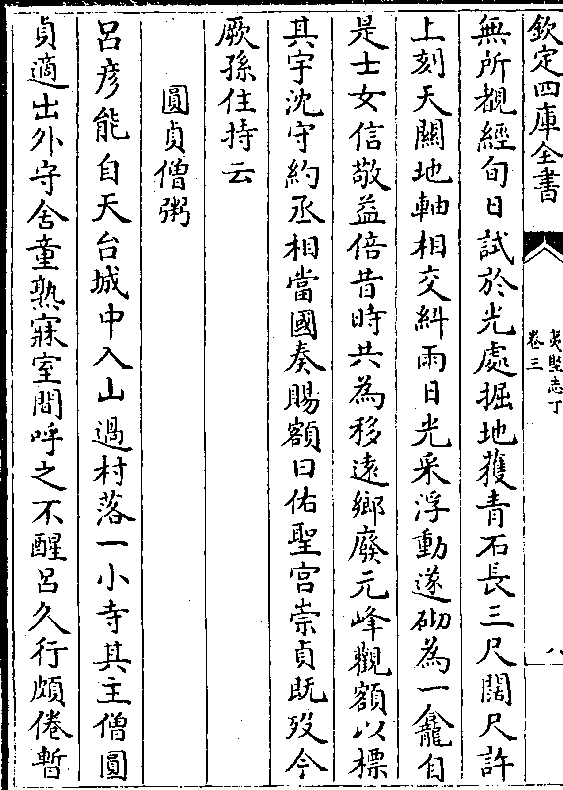 欽定四庫全書
夷堅志丁
卷三
八
無所覩經旬日試於光處掘地獲青石長三尺闊尺許
上刻天關地軸相交糾兩日光采浮動遂砌為一龕自
是士女信敬益倍昔時共為移遠鄉廢元峰觀額以標
其宇沈守約丞相當國奏賜額曰佑聖宫崇貞既歿今
厥孫住持云
圓貞僧粥
吕彦能自天台城中入山過村落一小寺其主僧圓
貞適出外守舍童熟寐室間呼之不醒吕久行頗倦暫